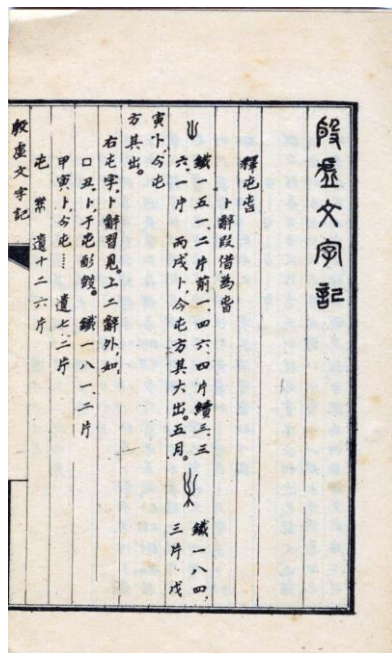 殷虛文字記
釋屯旾
卜辭叚借為旾
鐵一五一、二片前一、四六、四片續三、三 鐵一八四、
六、一片 丙戌卜,今屯方其大出。五月。 三片 戊
寅卜,今屯
方其出。
右屯字,卜辭習見。上二辭外,如
口丑,卜,于屯彭。鐵一八一、二片
甲寅,卜,今屯…… 遺七、二片
屯 遺十二六片
殷虛文字記